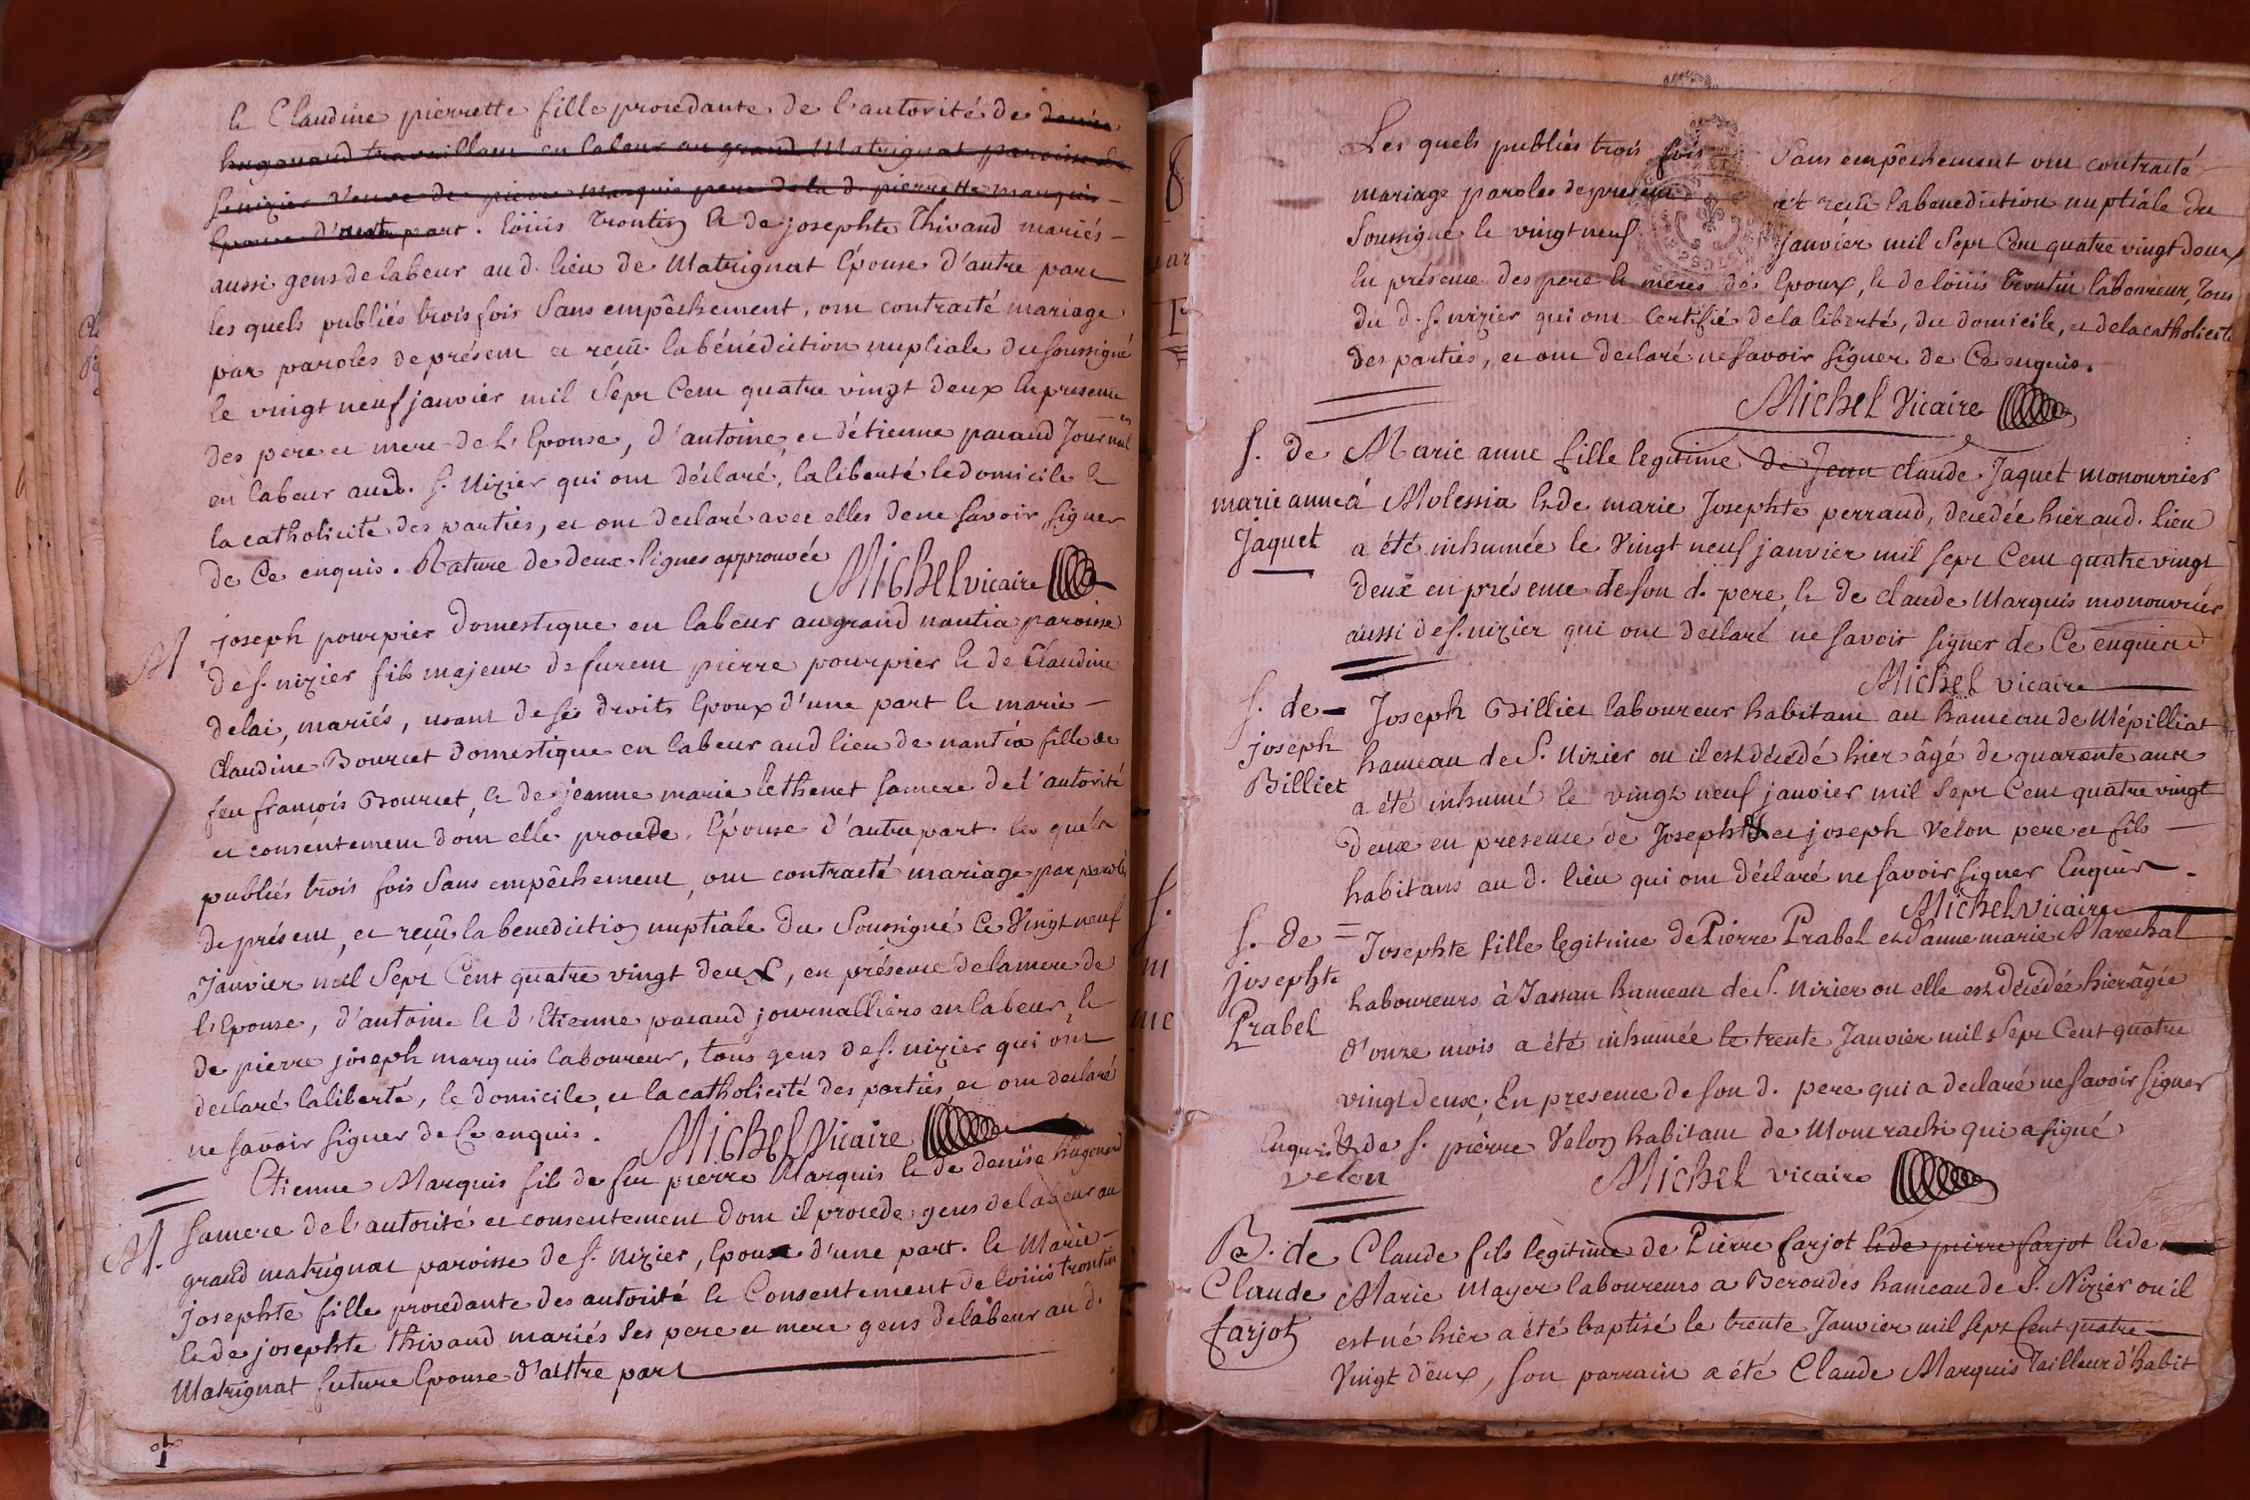 le Claudine pierrette fille procedante de l'autorité de denise
hugonand travaillant en labeur au grand Matrignat paroisse de
st nizier veuve de pierre Marquis pere de la d. pierrette marquis
Epouse d'autre part. loüis trontin et de josephte Thivand mariés
aussi gens de labeur au d. lieu de Matrignat Epouse d'autre part
les quels publiés trois fois Sans empêchement, ont contracté mariage
par paroles de présent et reçû la bénédiction nuptiale du soussigné
le vingt neuf janvier mil Sept Cent quatre vingt deux En presence
des pere et mere de L'Epouse, d'antoine, et d'étienne pacaud Journ
en labeur aud. S. Nizier qui ont déclaré, la liberté le domicile et
la catholicité des parties, et ont declaré avec elles de ne savoir signer
de Ce enquis. Rature de deux lignes approuvée
Michel vicaire
M
joseph pourpier Domestique en labeur au grand nantia paroisse
de S. nizier fils majeur de furent pierre pourpier et de Claudine
delai, mariés, usant de ses droits Epoux d'une part et marie
Claudine Bourcet Domestique en labeur aud lieu de nantia fille de
feu françois Bourcet, et de jeanne marie lethenet sa mere de l'autorité
et consentement dont elle procede. Epouse d'autre part. les quels
publiés trois fois Sans empêchement, ont contracté mariage par parole
de présent, et reçû la benediction nuptiale du Soussigné Ce Vingt neuf
Janvier mil Sept Cent quatre vingt deux, en présence de la mere de
l'Epouse, d'antoine et d'Etienne pacaud journalliers en labeur, et
de pierre joseph marquis laboureur, tous gens de S. nizier qui ont
declaré la liberté, le domicile, et la catholicité des parties et ont declaré
ne savoir signer de Ce enquis.
Michel Vicaire
M.
Etienne Marquis fils de feu pierre Marquis et de denise hugonand
sa mere de l'autorité et consentement dont il procede, gens de labeur au
grand matrignat paroisse de S. Nizier, Epoux d'une part. et Marie
josephte fille procedante des autorité et Consentement de loüis trontin
et de josephte thivand mariés ses pere et mere gens de labeur au d.
Matrignat future Epouse d'autre part
Les quels publiés trois fois Sans empêchement ont contracté
mariage paroles de present et reçû la benediction nuptiale du
Soussigné le vingt neuf janvier mil Sept Cent quatre vingt deux
En présence des pere et meres des Epoux, et de loüis trontin laboureur, tous
du d. S. nizier qui ont Certifié de la liberté, du domicile, et de la catholicité
des parties, et ont declaré ne savoir signer de Ce enquis.
Michel Vicaire
S. de
marie anne
Jaquet
Marie anne fille legitime de Jean claude Jaquet monouvrier
á Molessia et de marie Josephte perraud, decedée hier aud. Lieu
a été inhumée le Vingt neuf janvier mil sept Cent quatre vingt
deux en présence de son d. pere, et de claude Marquis monouvrier
aussi de S. nizier qui ont declaré ne savoir signer de Ce enquis
Michel vicaire
S. de
joseph
Billiet
Joseph Billiet laboureur habitant au hameau de Mépilliat
hameau de S. Nizier ou il est décedé hier âgé de quarante ans
a été inhumé le vingt neuf janvier mil Sept Cent quatre vingt
deux en presence de Joseph et joseph Velon pere et fils
habitans au d. lieu qui ont déclaré ne savoir signer Enquis.
Michel vicaire
S. de
josephte
Prabel
Josephte fille legitime de Pierre Prabel et d'anne marie Marechal
laboureurs à Tassan hameau de S. Nizier ou elle est décedée hier âgée
d'onze mois a été inhumée le trente Janvier mil Sept Cent quatre
vingt deux, En presence de son d. pere qui a declaré ne savoir signer
Enquis, et de S. pièrre Velon habitant de Montrachi qui a signé
velon
Michel vicaire
B. de
Claude
farjot
Claude fils legitime de Pierre farjot et de pierre farjot et de
Marie Mayer laboureurs a Beroudes hameau de S. Nizier ou il
est né hier a été baptisé le trente Janvier mil sept Cent quatre
Vingt deux, son parrain a été Claude Marquis Tailleur d'habit